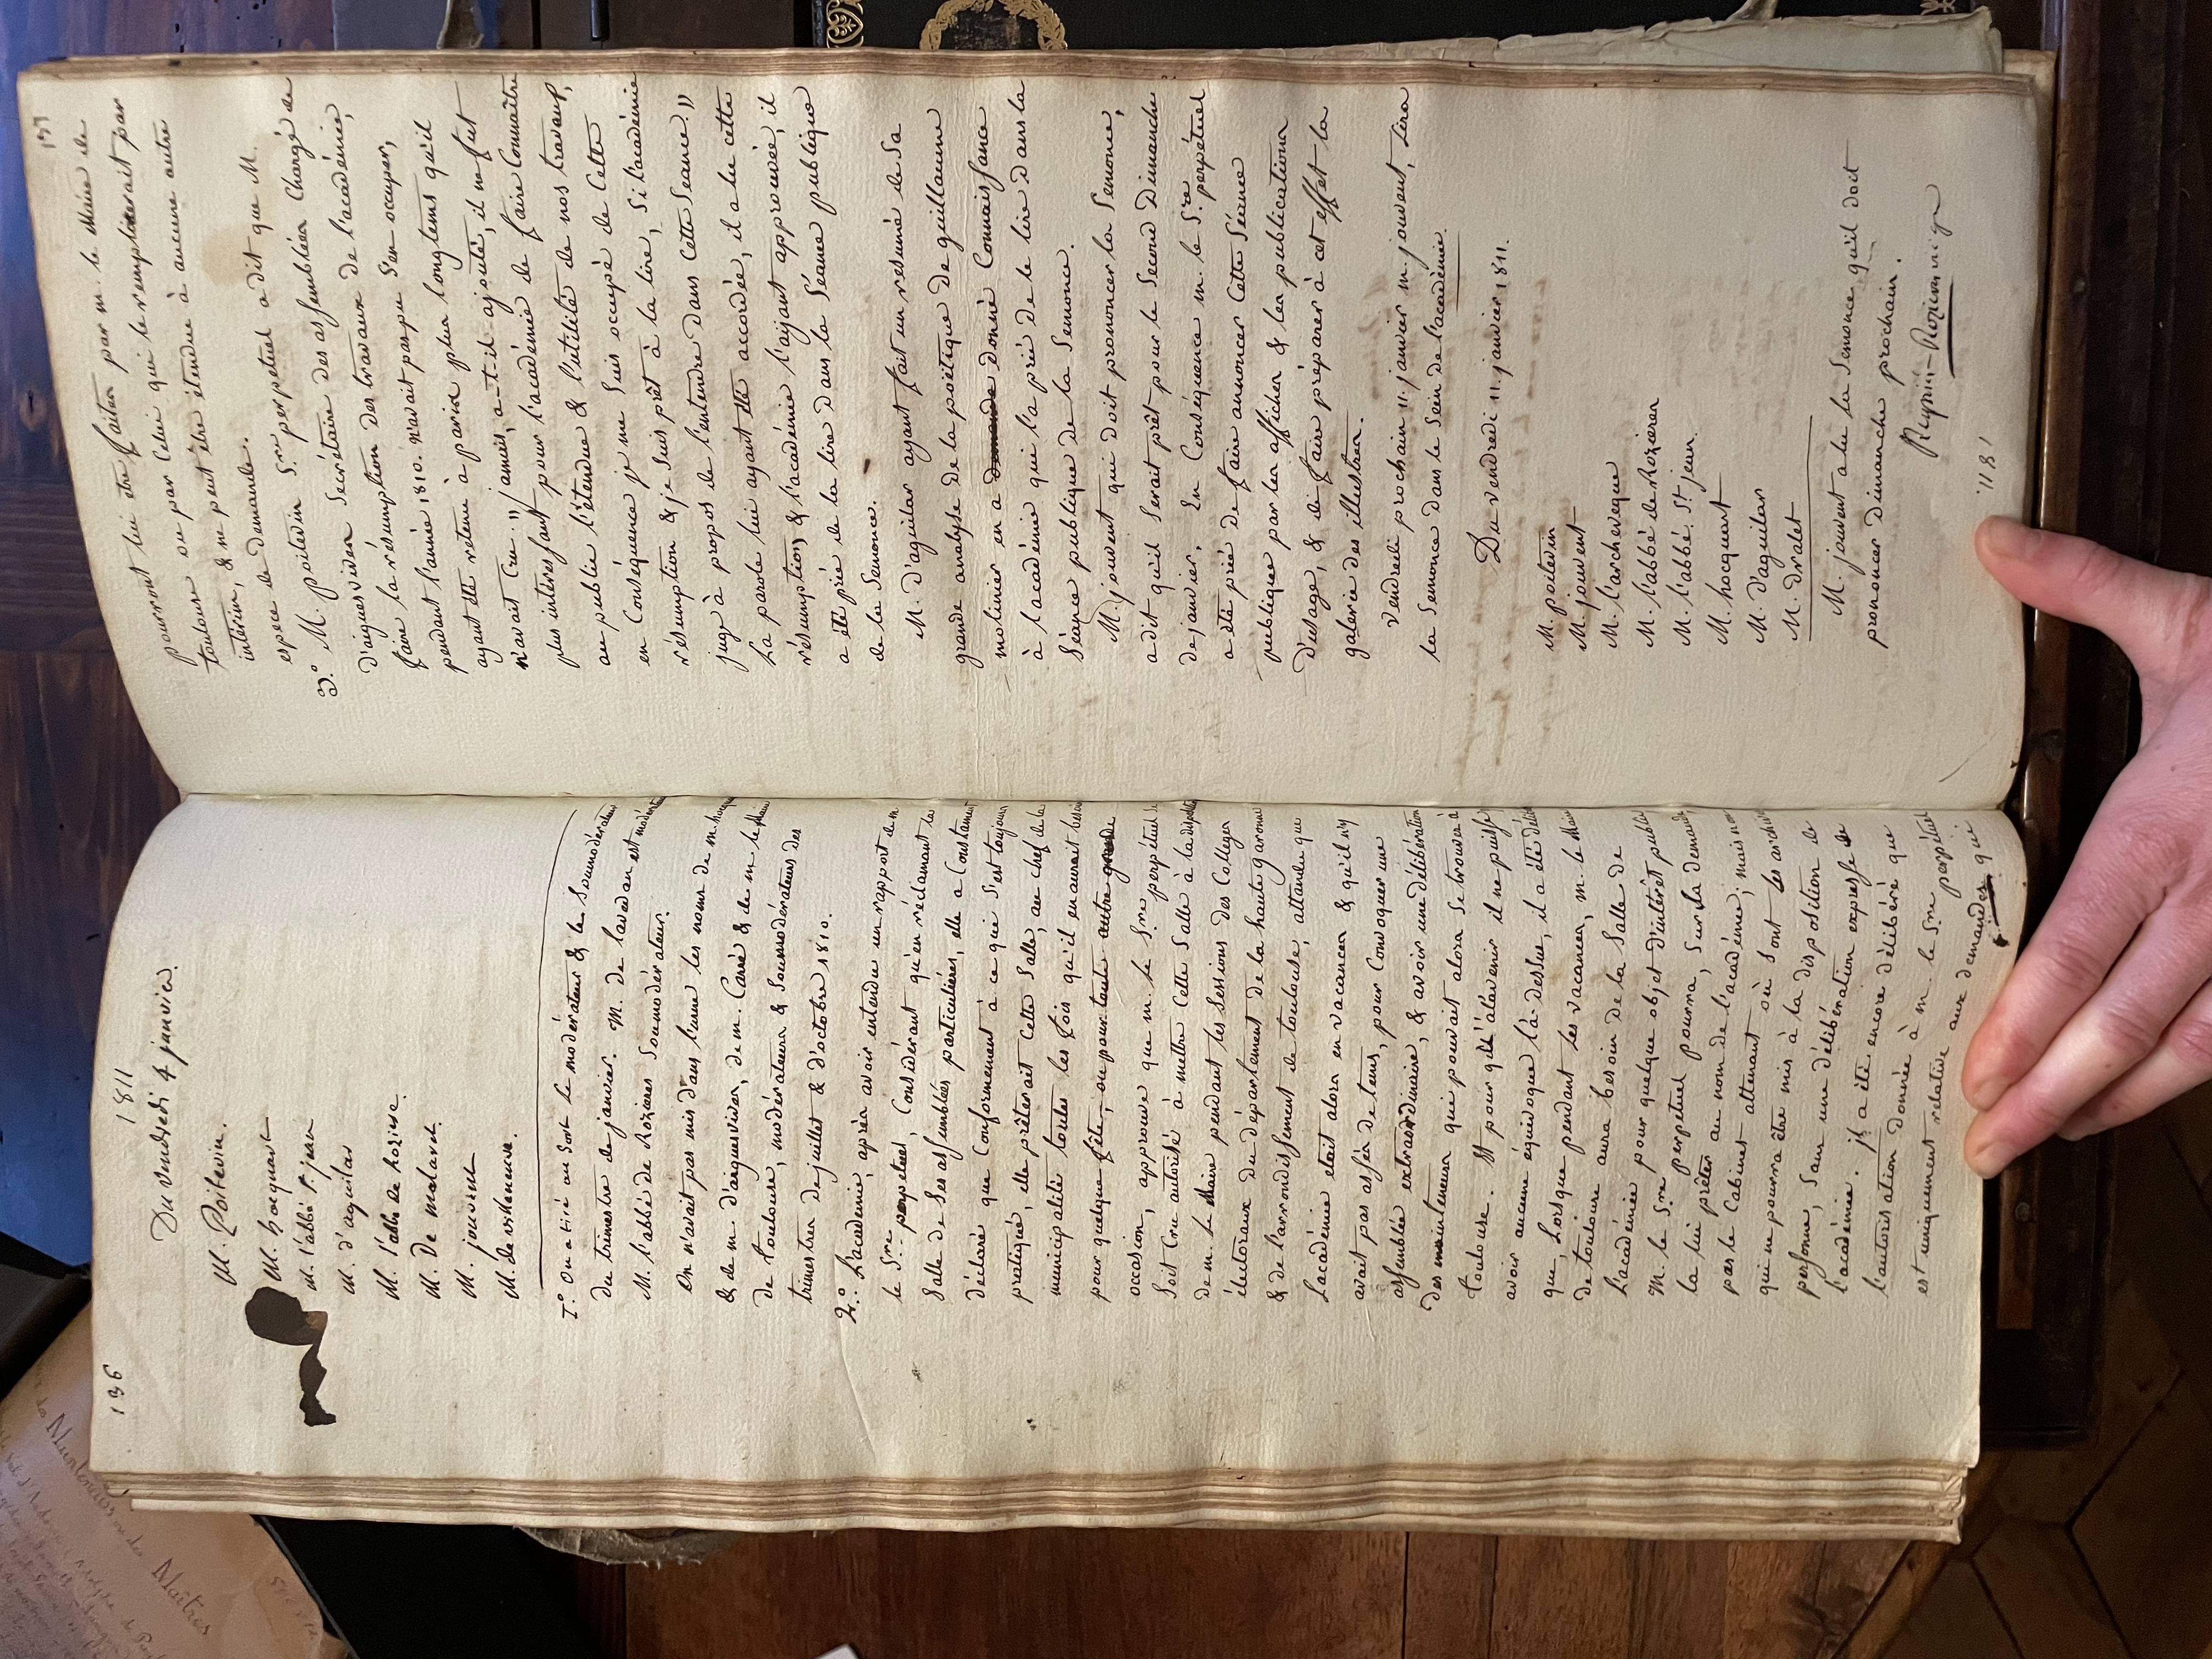 136
1811
Du vendredi 4 janvier.
M. Poitevin.
M. hocquart
M. l'abbé St. jean
M. d'aguilar
M. l'abbé de Rozieres.
M. De malaret.
M. jouvent
M. de villeneuve.
1.° On a tiré au Sort le modérateur & le Sousmodérateur
du trimestre de janvier. M. de lavedan est modérateur
M. l'abbé de Rozieres Sousmodérateur.
On n'avait pas mis dans l'urne les noms de m. hocquart
& de m. d'aiguesvives, de m. Carré & de m. le Maire
de toulouse, modérateurs & Sousmodérateurs des
trimestres de juillet & d'octobre 1810.
2.° L'académie, après avoir entendu un rapport de m.
le S.re perpétuel, Considérant qu'en réclamant la
Salle de Ses assemblées particulières, elle a Constamment
déclaré que Conformement à ce qui S'est toujours
pratiqué, elle prêterait Cette Salle, au chef de la
municipalité toutes les fois qu'il en aurait besoin
pour quelque fête, ou pour toute autre grande
occasion, approuve que m. le S.re perpétuel
Soit Cru autorisé à mettre Cette Salle à la disposition
de m. le Maire pendant les Sessions des Colleges
électoraux du département de la haute garonne
& de l'arrondissement de toulouse, attendu que
L'académie etait alors en vacances & qu'il n'y
avait pas assés de tems, pour Convoquer une
assemblée extraordinaire, & avoir une délibération
des mainteneurs qui pouvait alors Se trouver à
toulouse. Et pour qu'à l'avenir il ne puisse
avoir aucune équivoque là-dessus, il a été délibéré
que, Lorsque pendant les vacances, m. le Maire
de toulouse aura besoin de la Salle de
L'académie pour quelque objet d'intérêt public
M. le S.re perpetuel pourra, Sur sa demande
la lui prêter au nom de l'académie; mais non
pas le Cabinet attenant où Sont les archives
qui ne pourra être mis à la disposition de
personne, Sans une délibération expresse de
l'académie. Il a été encore délibéré que
l'autorisation donnée à m. le S.re perpétuel
est uniquement relative aux demandes qui
137
pourront lui être faites par m. le Maire de
toulouse ou par Celui qui le remplacerait par
interim, & ne peut être étendue à aucune autre
espece de demande.
3.° M. poitevin S.re perpetuel a dit que M.
d'aiguesvives Secrétaire des assemblées Chargé de
faire la résumption des travaux de l'académie,
pendant l'année 1810. n'avait pas pu S'en occuper,
ayant été retenu à paris plus longtems qu'il
n'avait Cru. " jamais, a-t-il ajouté, il ne fut
plus intéressant pour l'académie de faire Connaître
au public l'étendue & l'utilité de nos travaux,
en Conséquence je me Suis occupé de Cette
résumption & je Suis prêt à la lire, Si l'académie
juge à propos de l'entendre dans Cette Séance."
La parole lui ayant été accordée, il a lu cette
résumption, & l'académie l'ayant approuvée, il
a été prié de la lire dans la Séance publique
de la Semonce.
M. D'aguilar ayant fait un résumé de Sa
grande analyse de la poëtique de guillaume
molinier en a donné Connaissance
à l'académie qui l'a prié de le lire dans la
Séance publique de la Semonce.
M. jouvent qui doit prononcer la Semonce,
a dit qu'il Serait prêt pour le Second Dimanche
de janvier. En Conséquence m. le S.re perpétuel
a été prié de faire annoncer Cette Séance
publique par les affiches & les publications
D'usage, & de faire préparer à cet effet la
galerie des illustres.
Vendredi prochain 11. janvier m. jouvent, lira
la Semonce dans le Sein de l'académie.
Du vendredi 11. janvier 1811.
M. poitevin
M. jouvent
M. l'archeveque
M. l'abbé de Rozieres
M. l'abbé St. jean.
M. hocquart
M. D'aguilar
M. dralet
M. jouvent a lu la Semonce qu'il doit
prononcer dimanche prochain.
1811.
Muntenaires
Maîtres